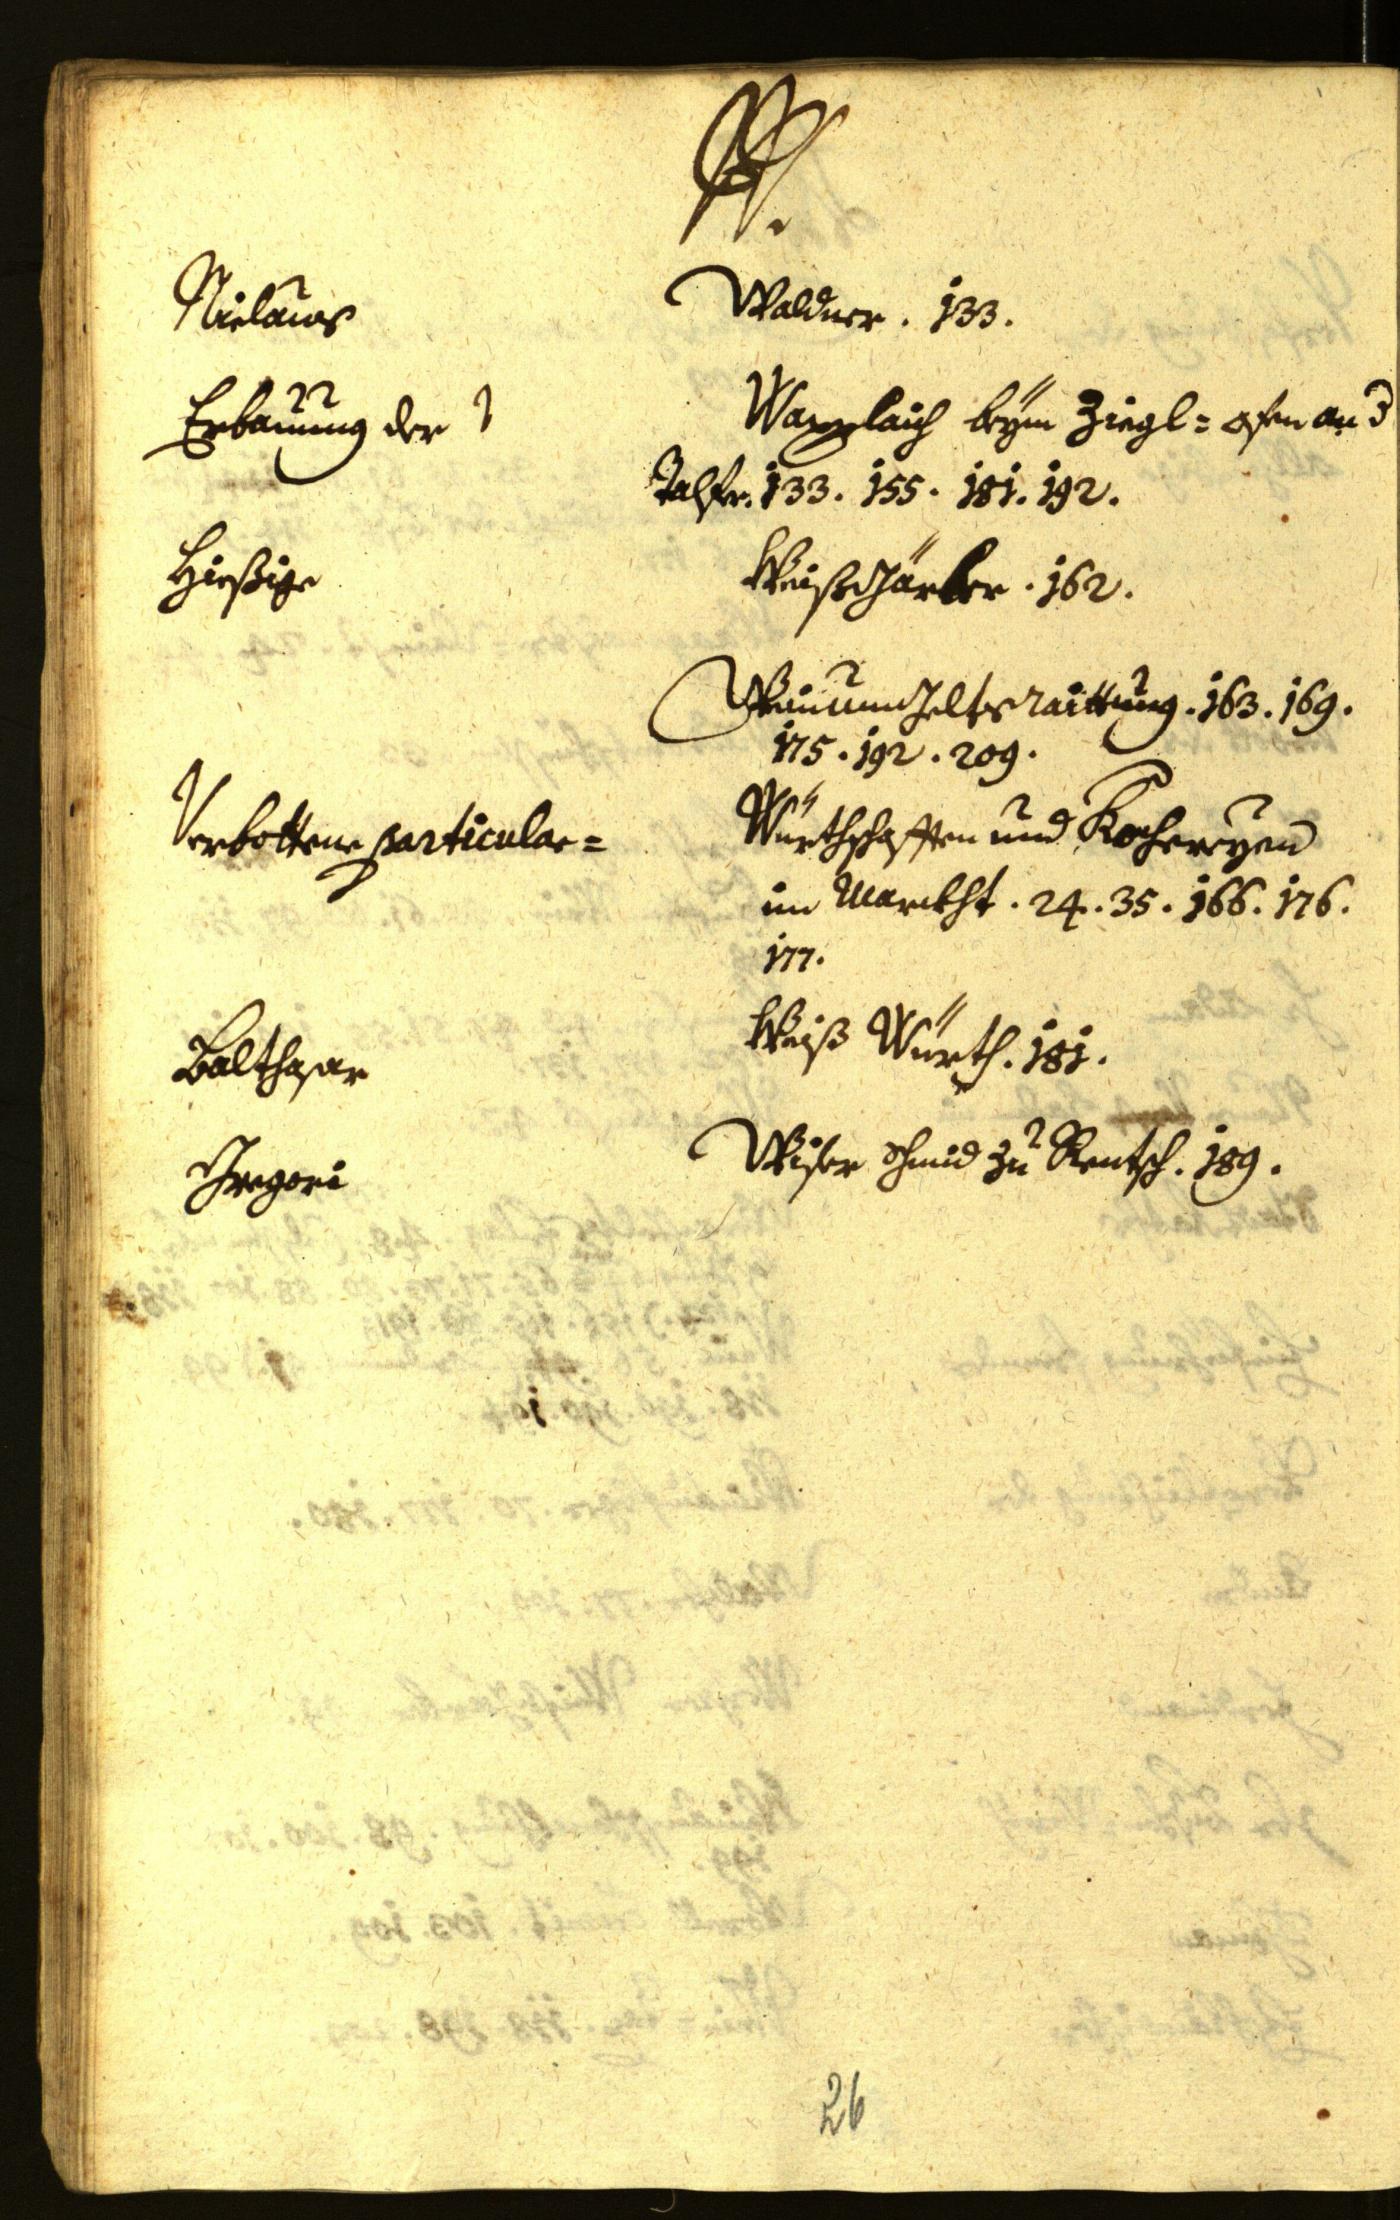 W.
Niclauß Waldner . 133.
Erbauung der Wasserlaich beÿm Ziegl= ofen an
Talfer. 133. 155. 181. 192.
Hießige Weißgärber . 162.
Weinumbgelts raittung . 163. 169.
175 . 192 . 209.
Verbottene particular= Würthschafften und Kochereyen
im Marckht . 24. 35. 166. 176.
177.
Balthasar Weiß Würth. 181.
Gregori Wiser Schmid zu Rentsch. 189.
26